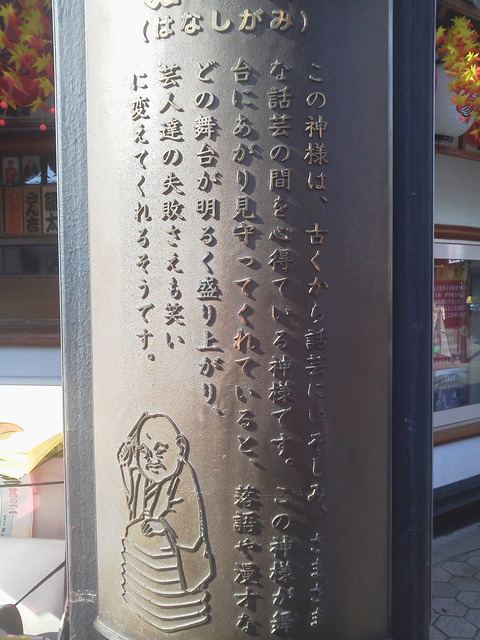 (はなしがみ)
この神様は、古くから話芸にいそしみ、さまざま
な話芸の間を心得ている神様です。この神様が舞
台にあがり見守ってくれていると、落語や漫才な
どの舞台が明るく盛り上がり、
芸人達の失敗さえも笑い
に変えてくれるそうです。